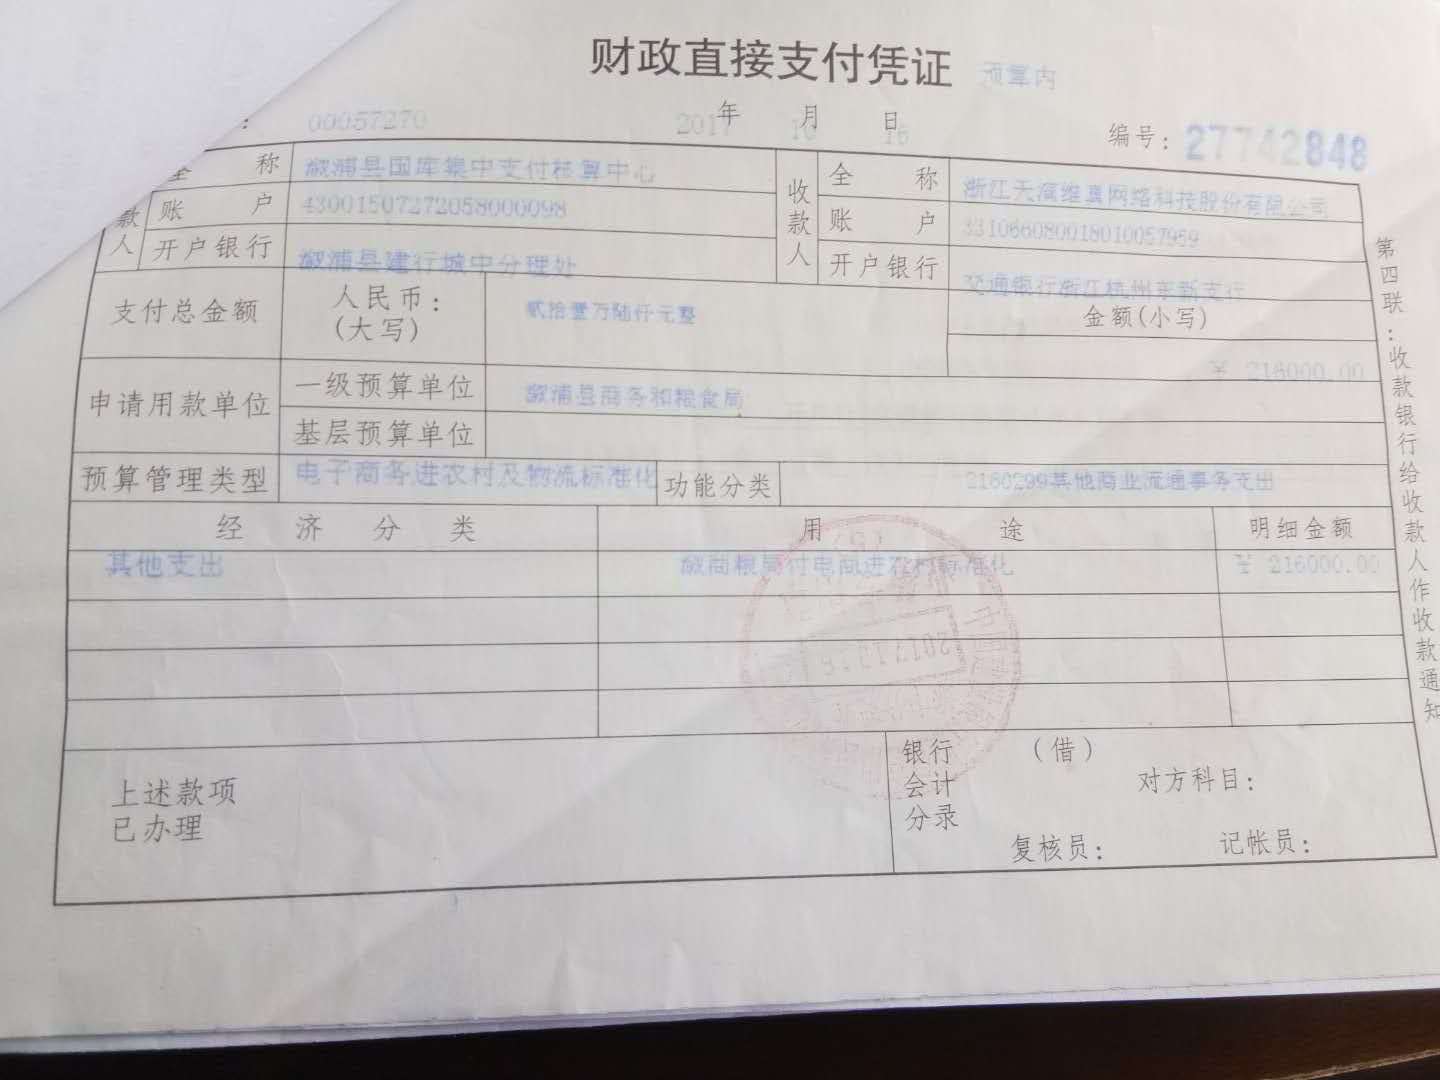 财政直接支付凭证 预算内
: 00057270 2017年 10月 16日 编号: 27742848
全称 溆浦县国库集中支付核算中心 收款人 全称 浙江天演维真网络科技股份有限公司
款人 账户 43001507272058000098 账户 331066080018010057959
开户银行 溆浦县建行城中分理处 开户银行 交通银行浙江杭州东新支行
支付总金额 人民币: (大写) 贰拾壹万陆仟元整 金额(小写)
¥ 216000.00
申请用款单位 一级预算单位 溆浦县商务和粮食局
基层预算单位
预算管理类型 电子商务进农村及物流标准化 功能分类 2160299其他商业流通事务支出
经济分类 用途 明细金额
其他支出 溆商粮局付电商进农村标准化 ¥ 216000.00
上述款项
已办理
银行会计分录 (借)
对方科目:
复核员: 记帐员:
第四联:收款银行给收款人作收款通知